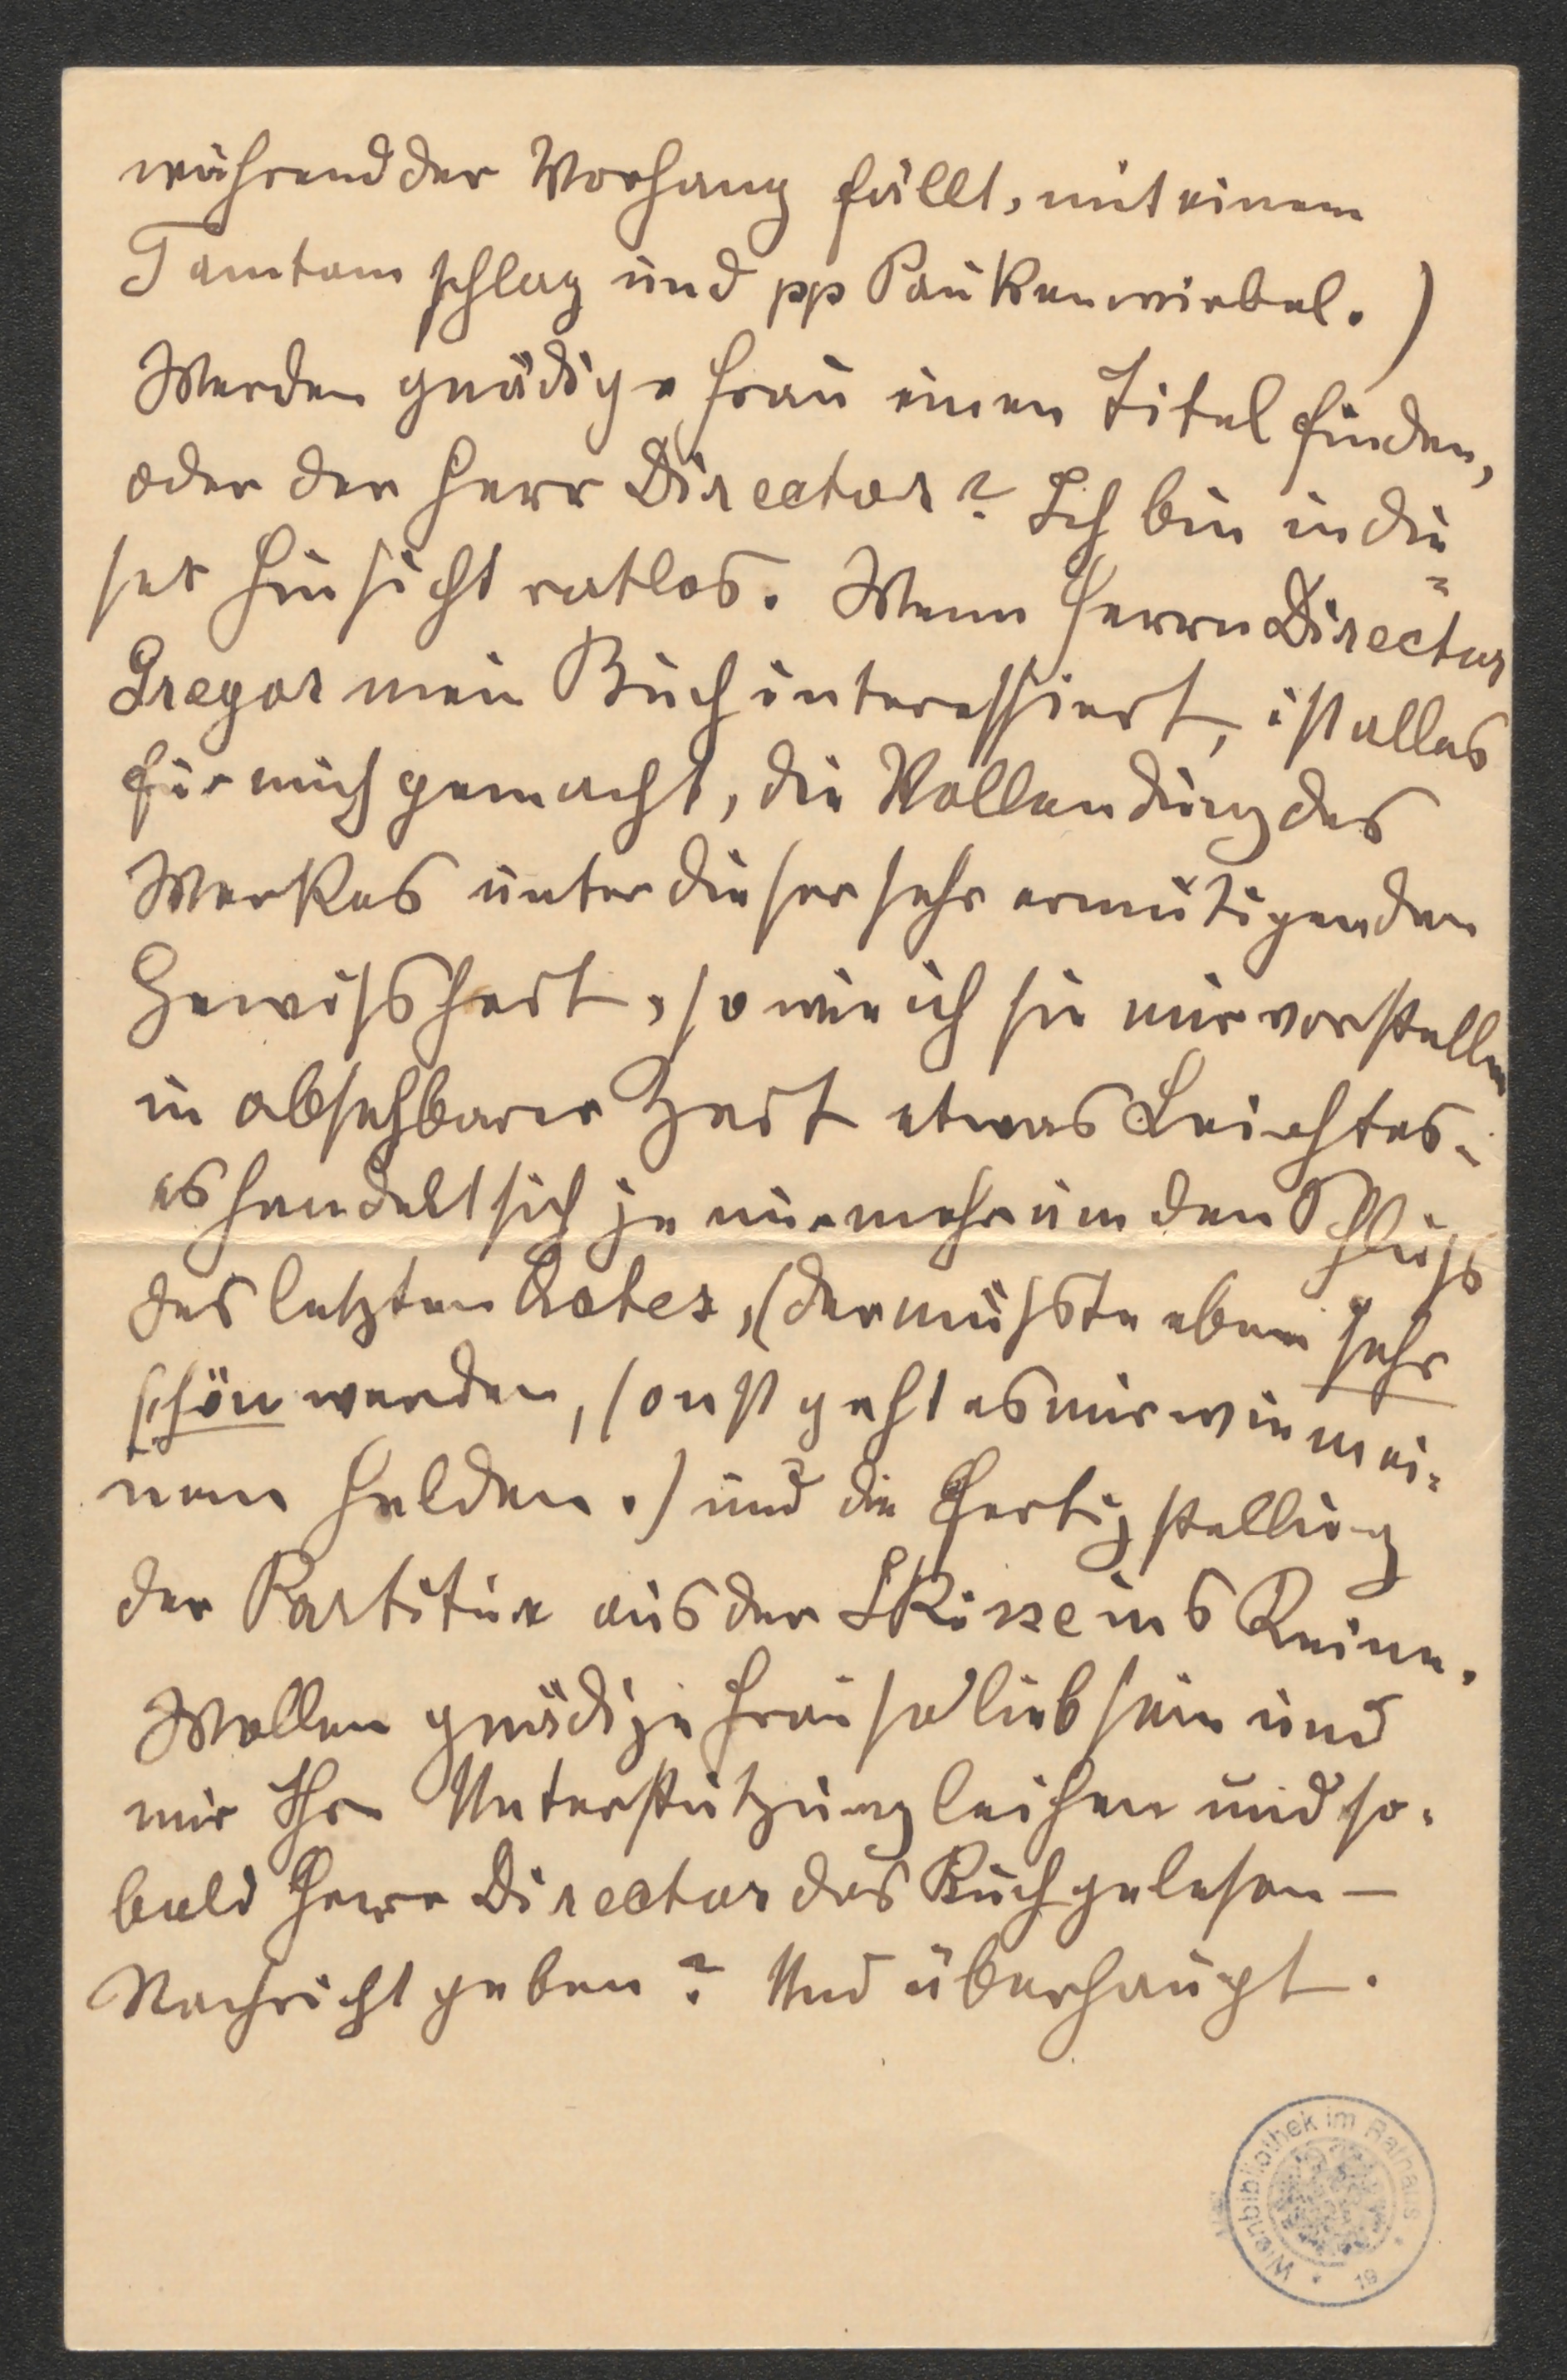 während der Vorhang fällt, mit einem
Tamtam schlag und pp Paukenwirbel.)
Werden gnädige Frau einen Titel finden,
oder der Herr Director? Ich bin in die=
ser Hinsicht ratlos. Wenn Herrn Director
Gregor mein Buch interessiert, ist alles
für mich gemacht, die Vollendung des
Werkes unter dieser sehr ermutigenden
Gewissheit, so wie ich sie mir vorstelle
in absehbarer Zeit etwas Leichtes.
es handelt sich ja nur mehr um den Schluss
des letzten Actes, (der müsste eben sehr
schön werden, sonst geht es mir wie mei=
nem Helden.) und die Fertigstellung
der Partitur aus der Skizze ins Reine.
Wollen gnädige Frau so lieb sein und
mir Ihre Unterstützung leihen und so=
bald Herr Director das Buch gelesen —
Nachricht geben? Und überhaupt.
Wienbibliothek im Rathaus
19